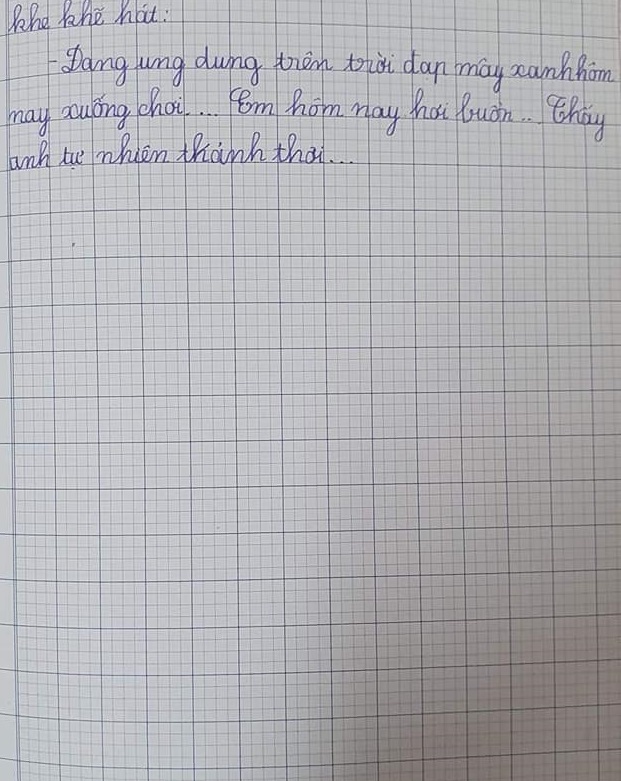 khe khẽ hát:
- Đang ung dung trên trời đạp mây xanh hôm
nay xuống chơi.... Em hôm nay hơi buồn... Thấy
anh tự nhiên thảnh thơi...